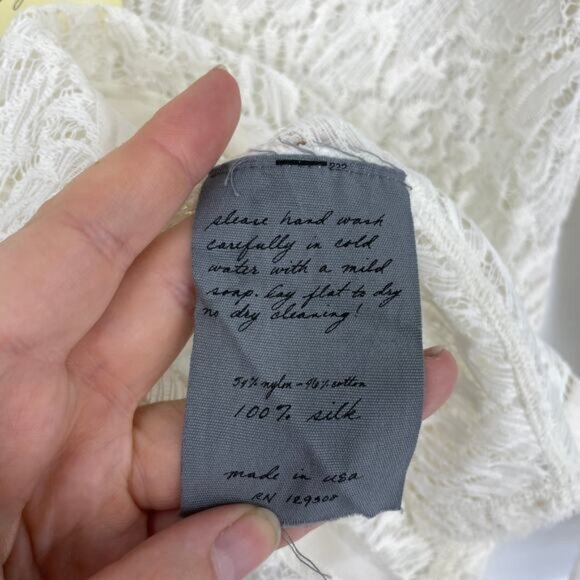 222
please hand wash
carefully in cold
water with a mild
soap. Lay flat to dry
no dry cleaning!
54% nylon - 46% cotton
100% silk
made in usa
RN 129308